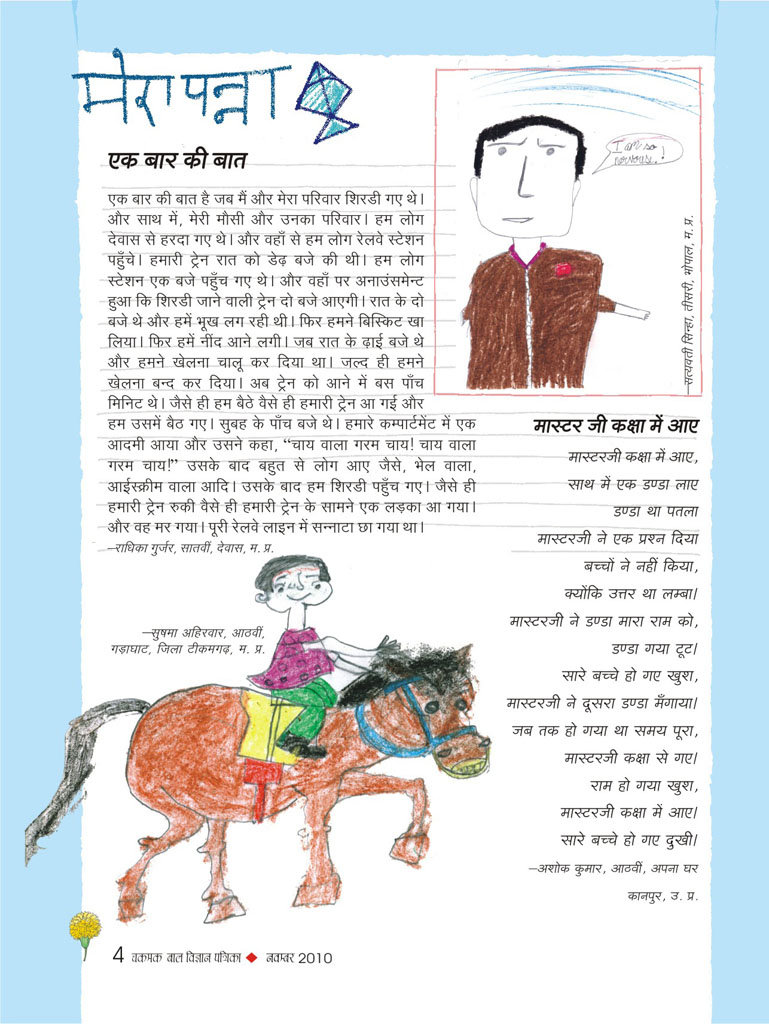 मेरा पन्ना
एक बार की बात
एक बार की बात है जब मैं और मेरा परिवार शिरडी गए थे।
और साथ में, मेरी मौसी और उनका परिवार। हम लोग
देवास से हरदा गए थे। और वहाँ से हम लोग रेलवे स्टेशन
पहुँचे। हमारी ट्रेन रात को डेढ़ बजे की थी। हम लोग
स्टेशन एक बजे पहुँच गए थे। और वहाँ पर अनाउंसमेन्ट
हुआ कि शिरडी जाने वाली ट्रेन दो बजे आएगी। रात के दो
बजे थे और हमें भूख लग रही थी। फिर हमने बिस्किट खा
लिया। फिर हमें नींद आने लगी। जब रात के ढ़ाई बजे थे
और हमने खेलना चालू कर दिया था। जल्द ही हमने
खेलना बन्द कर दिया। अब ट्रेन को आने में बस पाँच
मिनिट थे। जैसे ही हम बैठे वैसे ही हमारी ट्रेन आ गई और
हम उसमें बैठ गए। सुबह के पाँच बजे थे। हमारे कम्पार्टमेंट में एक
आदमी आया और उसने कहा, “चाय वाला गरम चाय! चाय वाला
गरम चाय!” उसके बाद बहुत से लोग आए जैसे, भेल वाला,
आईस्क्रीम वाला आदि। उसके बाद हम शिरडी पहुँच गए। जैसे ही
हमारी ट्रेन रुकी वैसे ही हमारी ट्रेन के सामने एक लड़का आ गया।
और वह मर गया। पूरी रेलवे लाइन में सन्नाटा छा गया था।
—राधिका गुर्जर, सातवीं, देवास, म. प्र.
I am so
nervous!
—सत्यवती सिन्हा, तीसरी, भोपाल, म. प्र.
मास्टर जी कक्षा में आए
मास्टरजी कक्षा में आए,
साथ में एक डण्डा लाए
डण्डा था पतला
मास्टरजी ने एक प्रश्न दिया
बच्चों ने नहीं किया,
क्योंकि उत्तर था लम्बा।
मास्टरजी ने डण्डा मारा राम को,
डण्डा गया टूट।
सारे बच्चे हो गए खुश,
मास्टरजी ने दूसरा डण्डा मँगाया।
जब तक हो गया था समय पूरा,
मास्टरजी कक्षा से गए।
राम हो गया खुश,
मास्टरजी कक्षा में आए।
सारे बच्चे हो गए दुखी।
—अशोक कुमार, आठवीं, अपना घर
कानपुर, उ. प्र.
—सुषमा अहिरवार, आठवीं,
गड़ाघाट, जिला टीकमगढ़, म. प्र.
4 चकमक बाल विज्ञान पत्रिका ◆ नवम्बर 2010